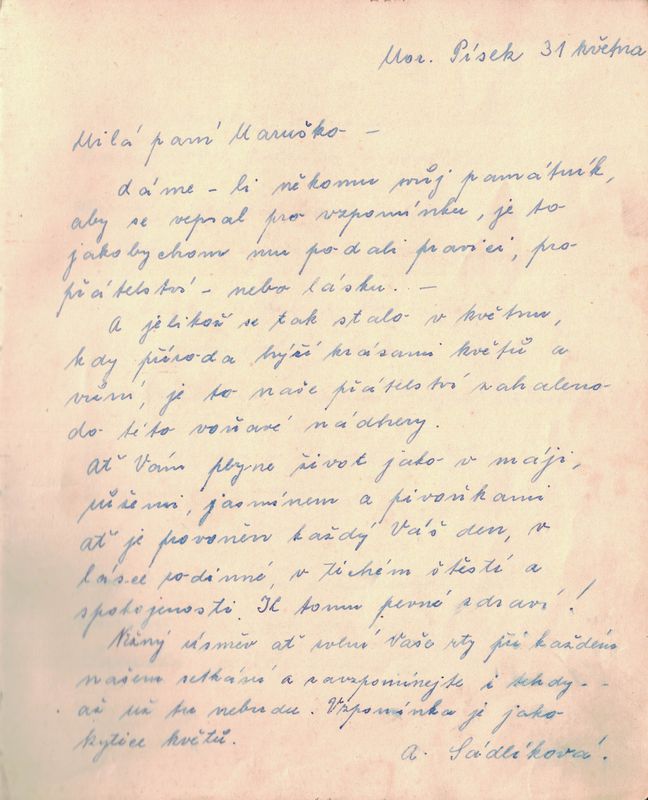 Mor. Písek 31 května
Milá paní Maruško –
dáme – li někomu svůj památník,
aby se vepsal pro vzpomínku, je to
jakobychom mu podali pravici, pro
přátelství – nebo lásku. –
A jelikož se tak stalo v květnu,
kdy příroda hýží krásami květů a
vůní, je to naše přátelství zahaleno
do této voňavé nádhery.
Ať Vám plyne život jako v máji,
růžemi, jasmínem a pivoňkami
ať je provoněn každý Váš den, v
lásce rodinné, v tichém štěstí a
spokojenosti. K tomu pevné zdraví!
Něžný úsměv ať zvlní Vaše rty při každém
našem setkání a zavzpomínejte i tehdy – –
až už tu nebudu. Vzpomínka je jako
kytice květů.
A. Sádlíková.